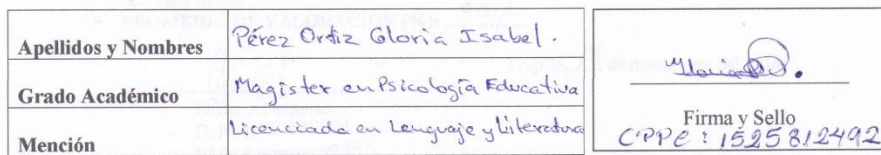 Apellidos y Nombres Pérez Ortiz Gloria Isabel.
Grado Académico Magister en Psicología Educativa
Mención Licenciada en Lenguaje y Literatura
Firma y Sello
CPPE: 1525812492